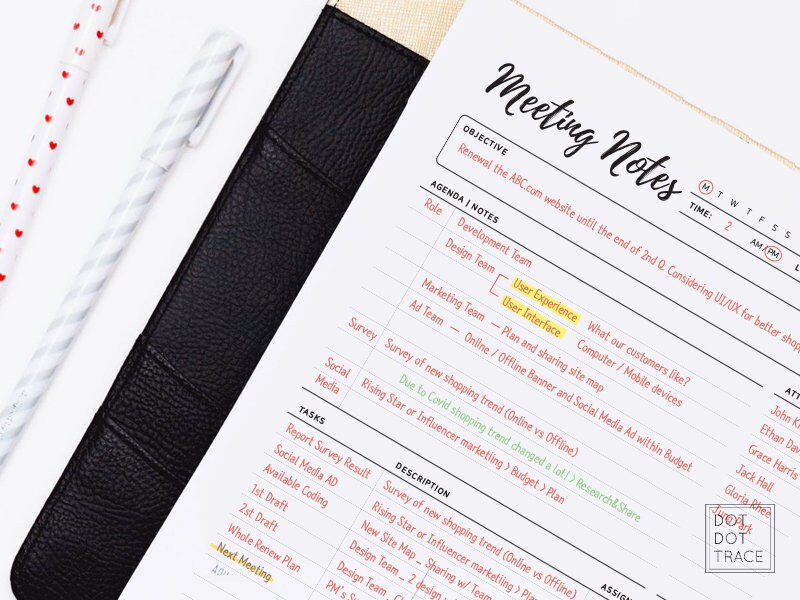 Meeting Notes
M T W T F S S
TIME: 2 AM/PM
OBJECTIVE
Renewal the ABC.com website until the end of 2nd Q. Considering UI/UX for better
AGENDA | NOTES
Role Development Team
Design Team User Experience What our customers like?
User Interface Computer / Mobile devices
Marketing Team — Plan and sharing site map
Ad Team — Online / Offline Banner and Social Media Ad within Budget
Survey Survey of new shopping trend (Online vs Offline)
Due to Covid shopping trend changed a lot! > Research&Share
Social Media Rising Star or Influencer marketing > Budget > Plan
John
Ethan
Grace Harris
Jack Hall
Gloria Rhee
June Park
TASKS DESCRIPTION
Report Survey Result Survey of new shopping trend (Online vs Offline)
Social Media AD Rising Star or Influencer marketing >
Available Coding New Site Map _ Sharing w/ Team
1st Draft Design Team _ 2 design
2st Draft Design Team _
Whole Renew Plan PM's
Next Meeting
DOT
DOT
TRACE